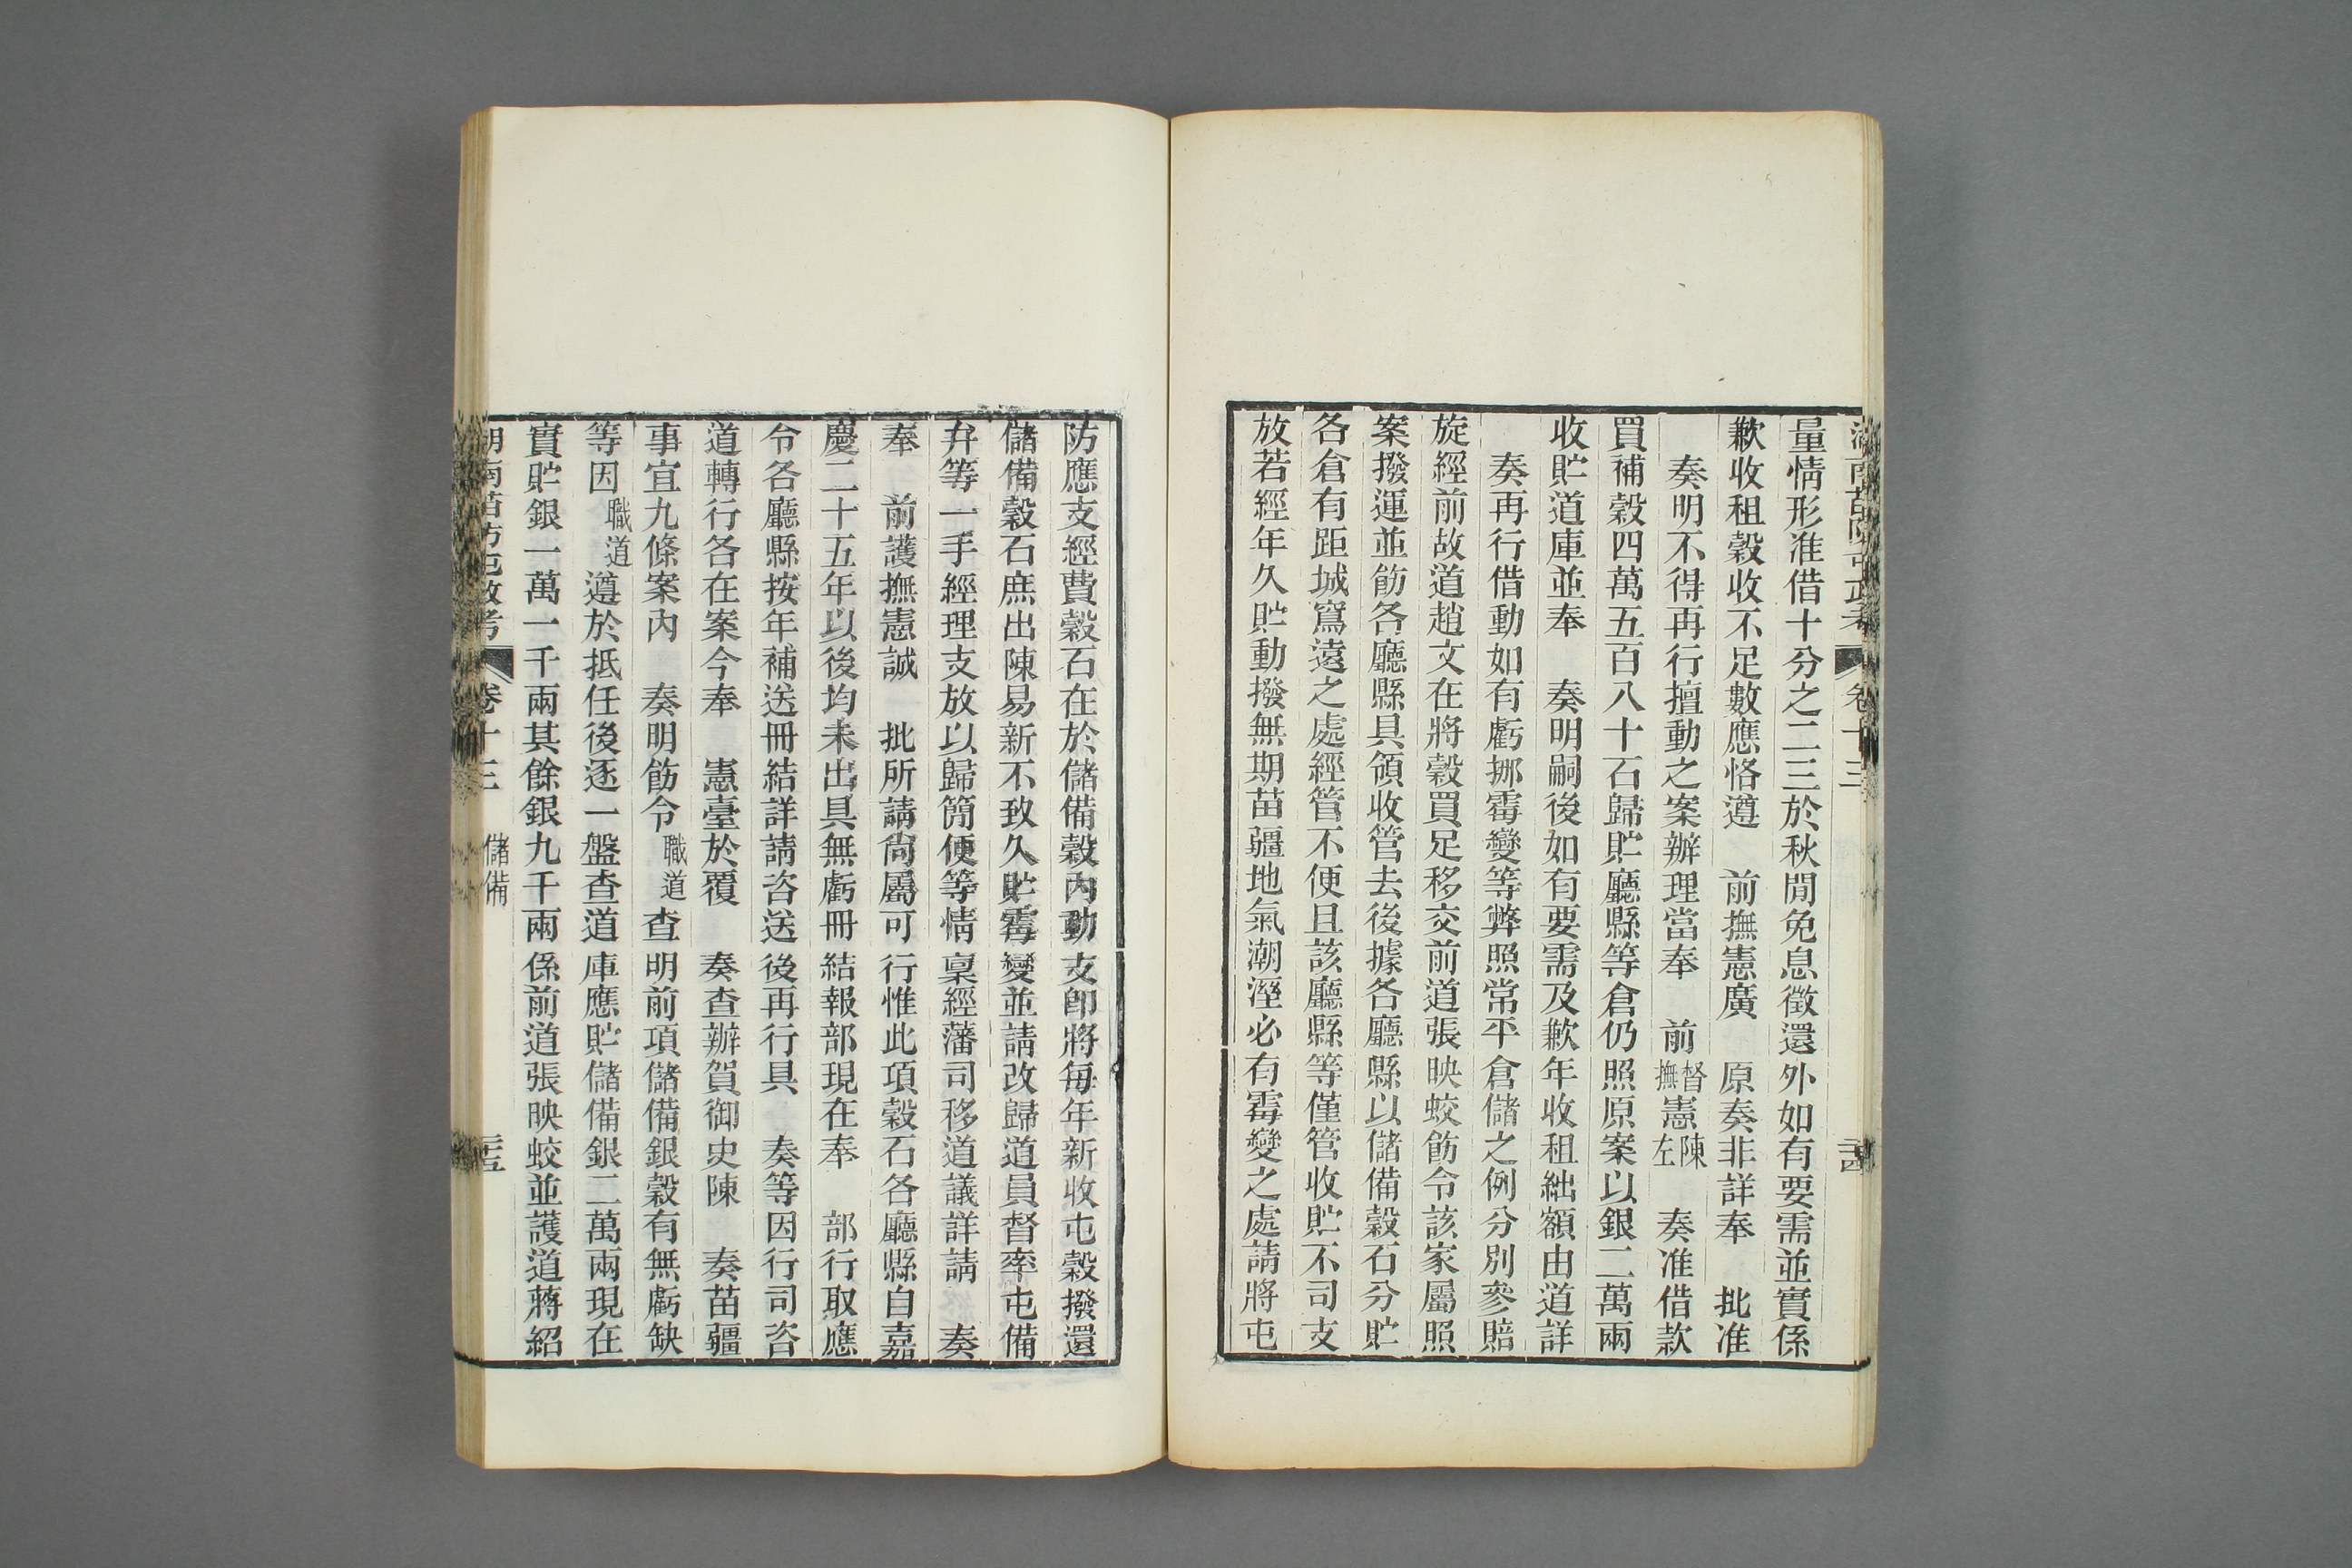 量情形准借十分之二三於秋閒免息徵還外如有要需並實係
歉收租穀收不足數應恪遵　前撫憲廣　原奏非詳奉　批准
奏明不得再行擅動之案辦理當奉　前督撫憲陳左　奏准借款
買補穀四萬五百八十石歸貯廳縣等倉仍照原案以銀二萬兩
收貯道庫並奉　奏明嗣後如有要需及歉年收租絀額由道詳
奏再行借動如有虧挪霉變等弊照常平倉儲之例分別參賠
旋經前故道趙文在將穀買足移交前道張映蛟飭令該家屬照
案撥運並飭各廳縣具領收管去後據各廳縣以儲備穀石分貯
各倉有距城窵遠之處經管不便且該廳縣等僅管收貯不司支
放若經年久貯動撥無期苗疆地氣潮溼必有霉變之處請將屯
防應支經費穀石在於儲備穀內動支卽將每年新收屯穀撥還
儲備穀石庶出陳易新不致久貯霉變並請改歸道員督率屯備
弁等一手經理支放以歸簡便等情稟經藩司移道議詳請　奏
奉　前護撫憲誠　批所請尙屬可行惟此項穀石各廳縣自嘉
慶二十五年以後均未出具無虧冊結報部現在奉　部行取應
令各廳縣按年補送冊結詳請咨送後再行具　奏等因行司咨
道轉行各在案今奉　憲臺於覆　奏查辦賀御史陳　奏苗疆
事宜九條案內　奏明飭令職道查明前項儲備銀穀有無虧缺
等因職道遵於抵任後逐一盤查道庫應貯儲備銀二萬兩現在
實貯銀一萬一千兩其餘銀九千兩係前道張映蛟並護道蔣紹
湖南苗防屯政考　卷十三　儲備　二十五